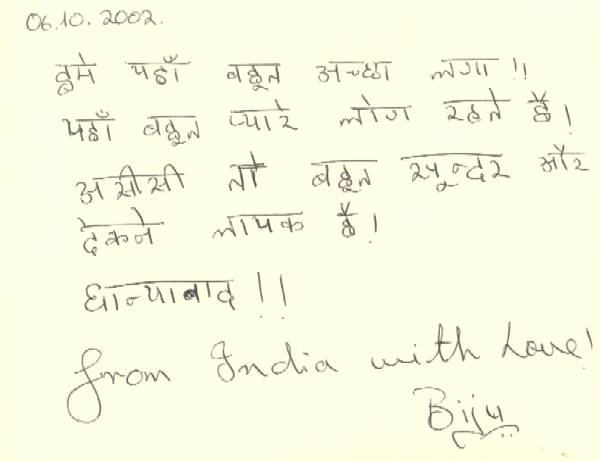 06.10.2002.
हमे यहाँ बहुत अच्छा लगा!!
यहाँ बहुत प्यारे लोग रहते हैं।
असीसी तो बहुत सून्दर और
देकने लायक हैं।
धान्याबाद!!
from India with Love!
Biju